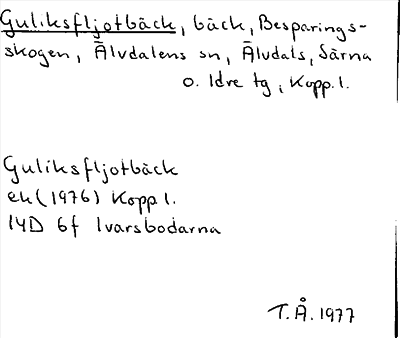 Guliksfljotbäck, bäck, Besparings-
skogen, Älvdalens sn, Älvdals, Särna
o. Idre tg, Kopp. l.
Guliksfljotbäck
ek (1976) Kopp l.
14D 6f Ivarsbodarna
T.Å. 1977